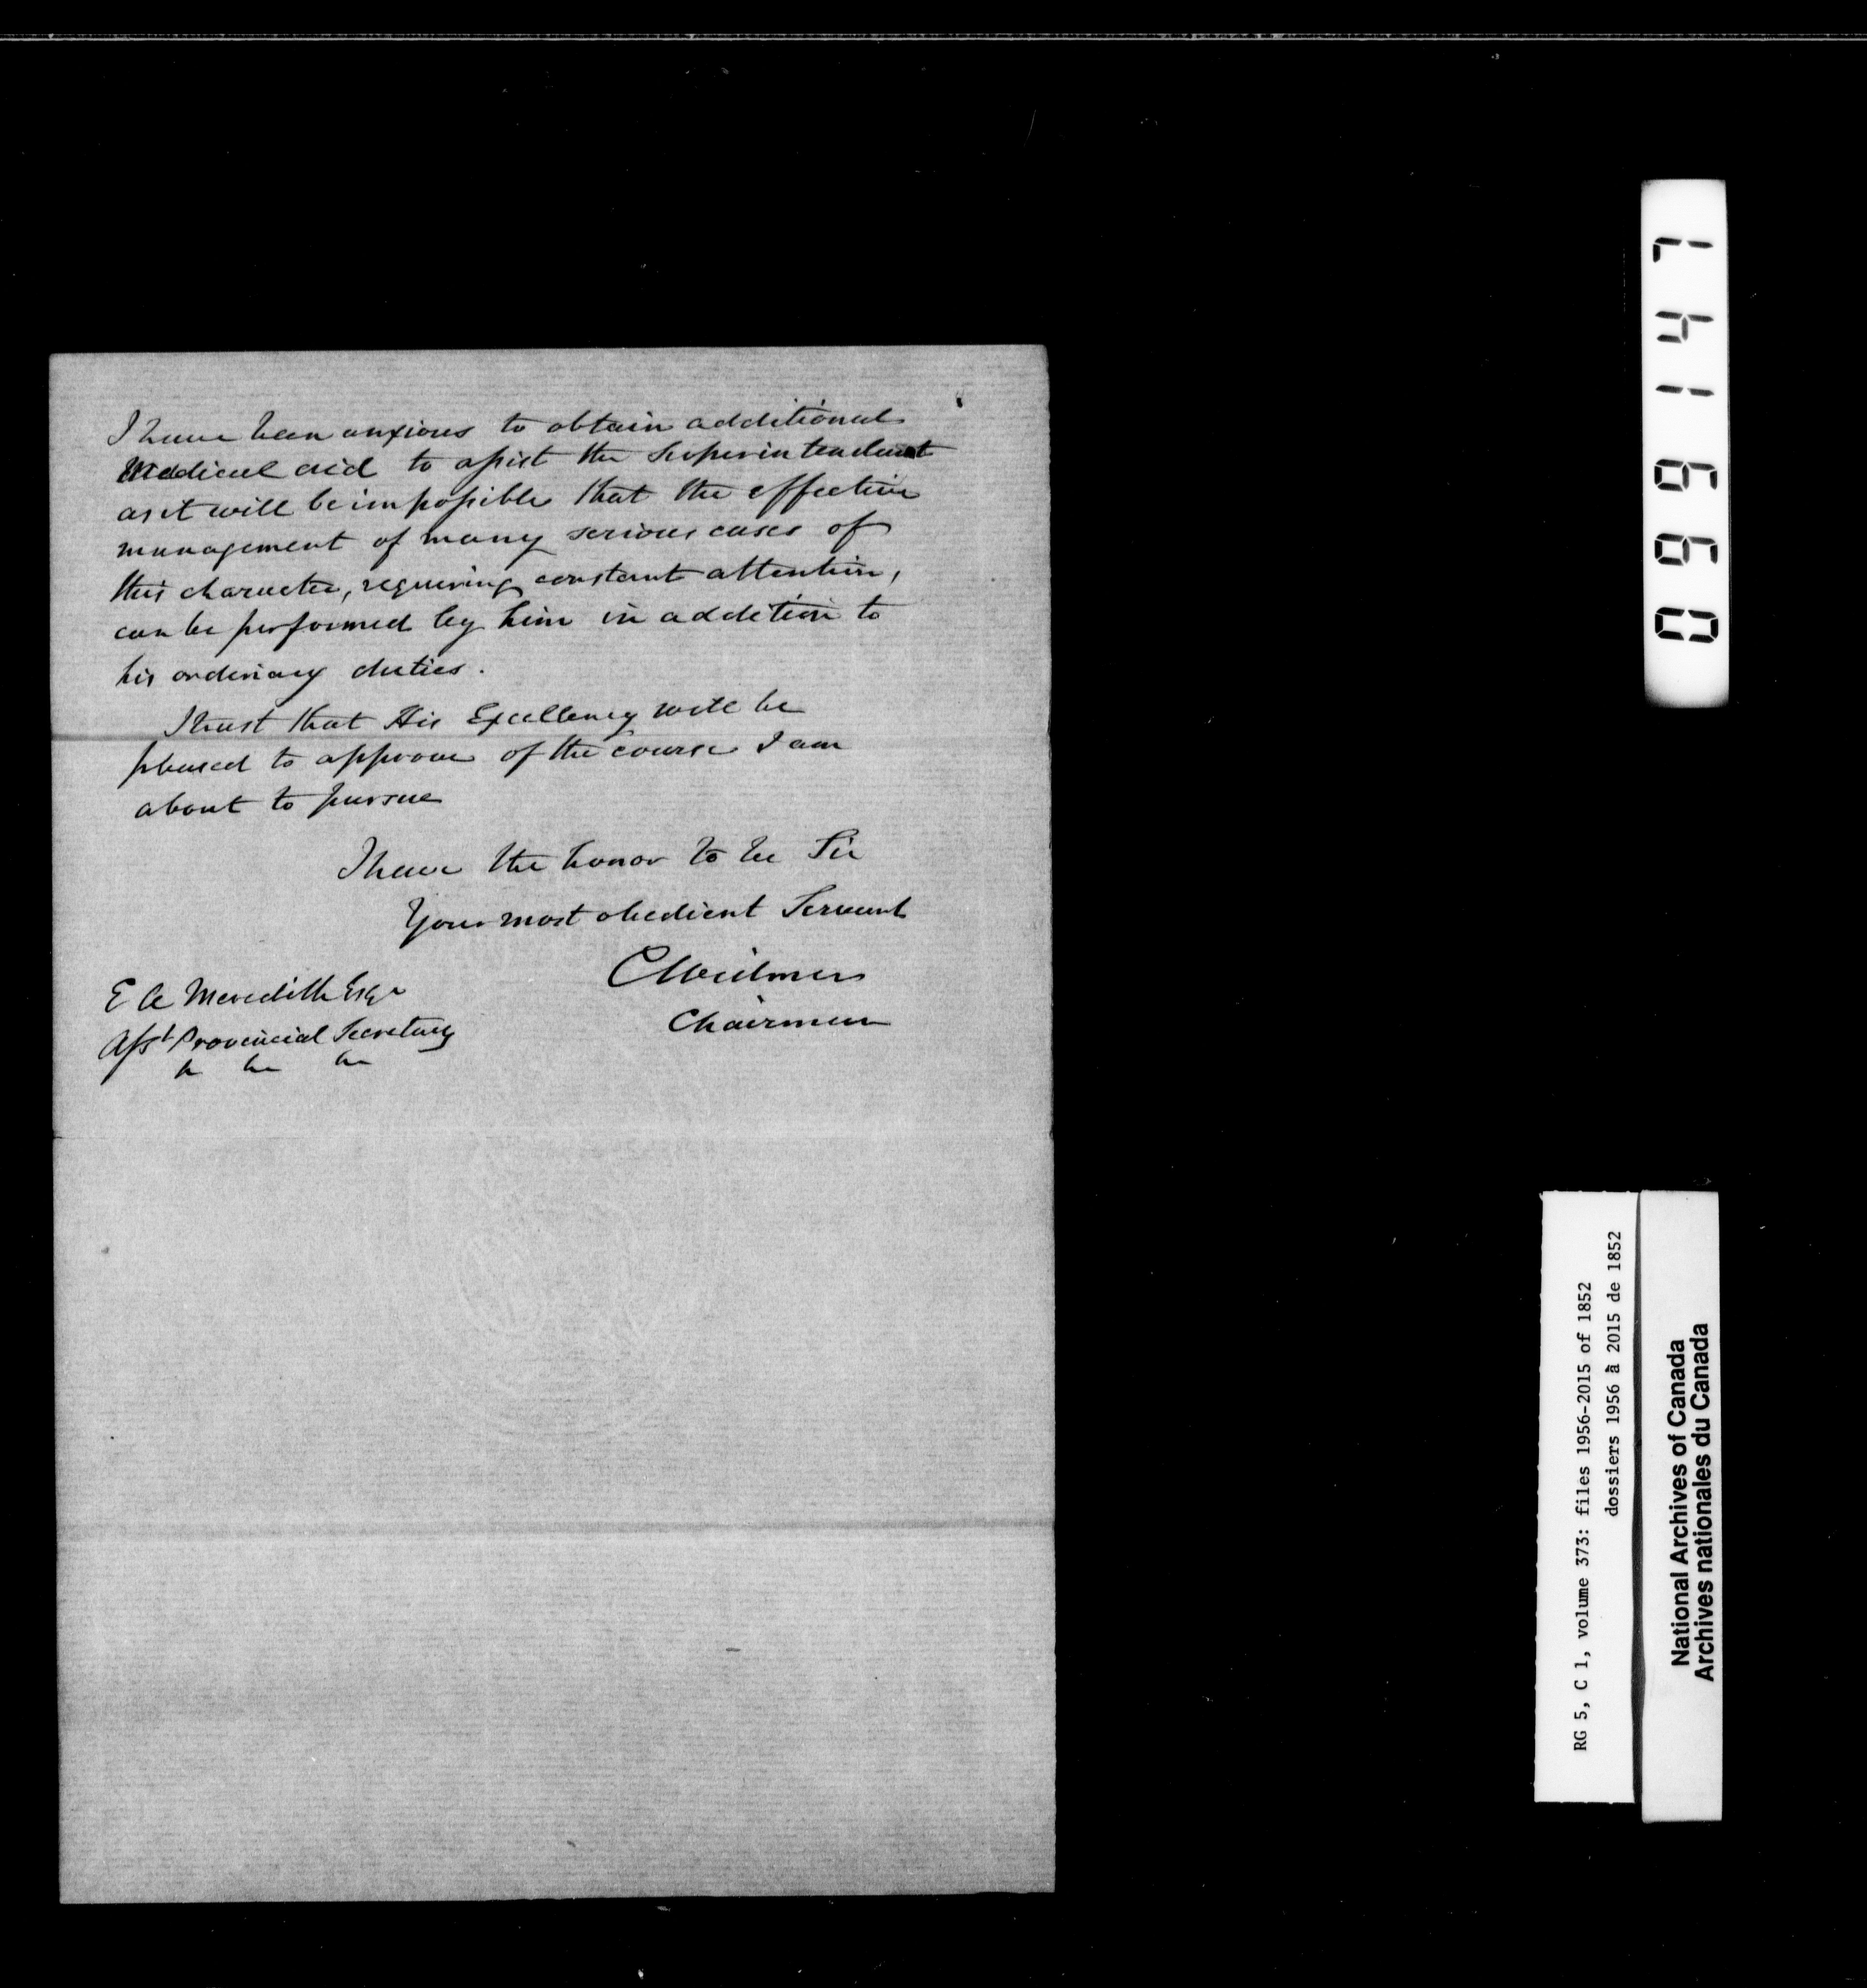 I have been anxious to obtain additional
Medical aid to assist the Superintendent
as it will be impossible that the effective
management of many serious cases of
this character, requiring constant attention,
can be performed by him in addition to
his ordinary duties.
I trust that His Excellency will be
pleased to approve of the course I am
about to pursue
I have the honor to be Sir
Your most obedient Servant
C Widmer
Chairman
E A Meredith Esqr
Asst Provincial Secretary
096147
RG 5, C 1, volume 373: files 1956-2015 of 1852
dossiers 1956 à 2015 de 1852
National Archives of Canada
Archives nationales du Canada